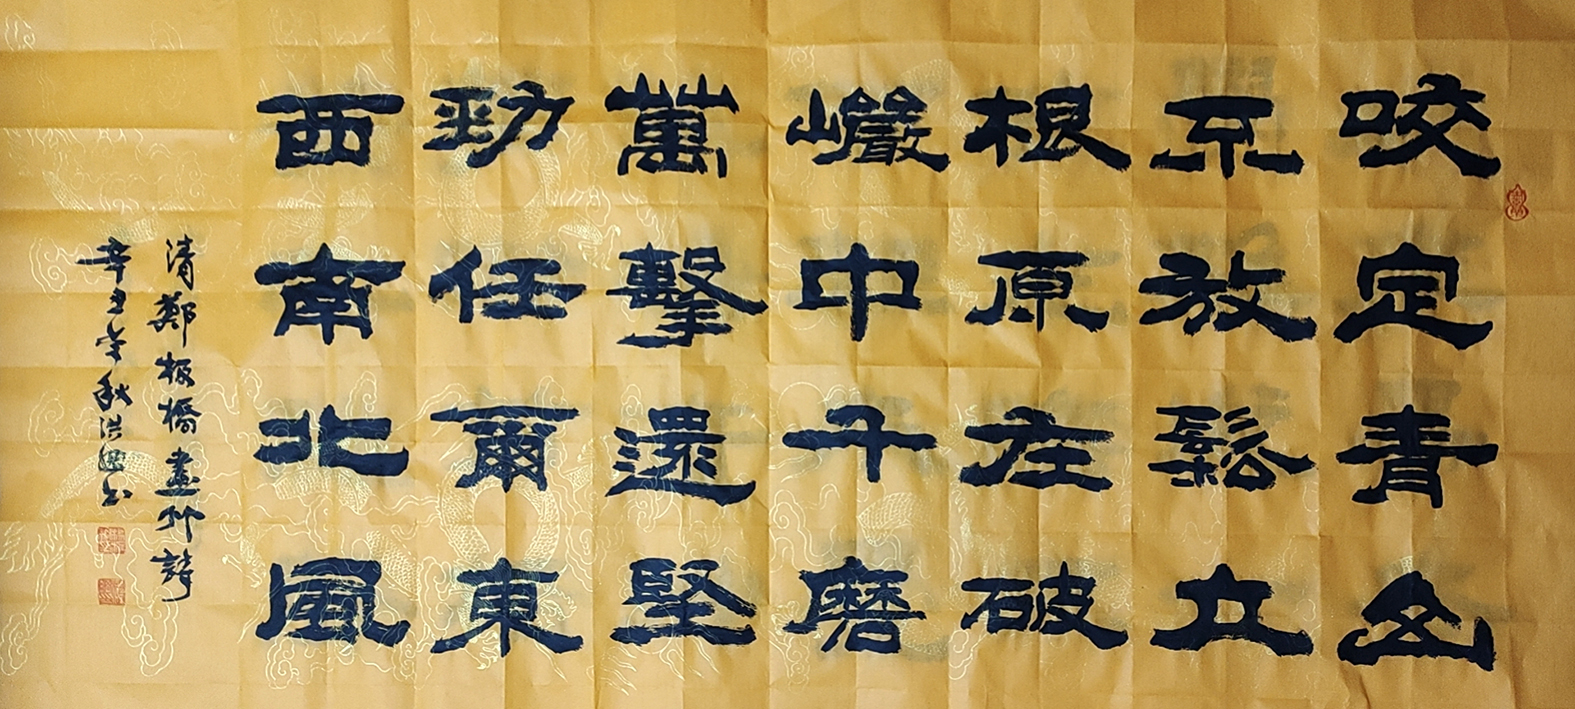 咬定青山
不放鬆立
根原在破
巖中千磨
萬擊還堅
勁任爾東
西南北風
清鄭板橋畫竹詩
辛丑年秋洪书